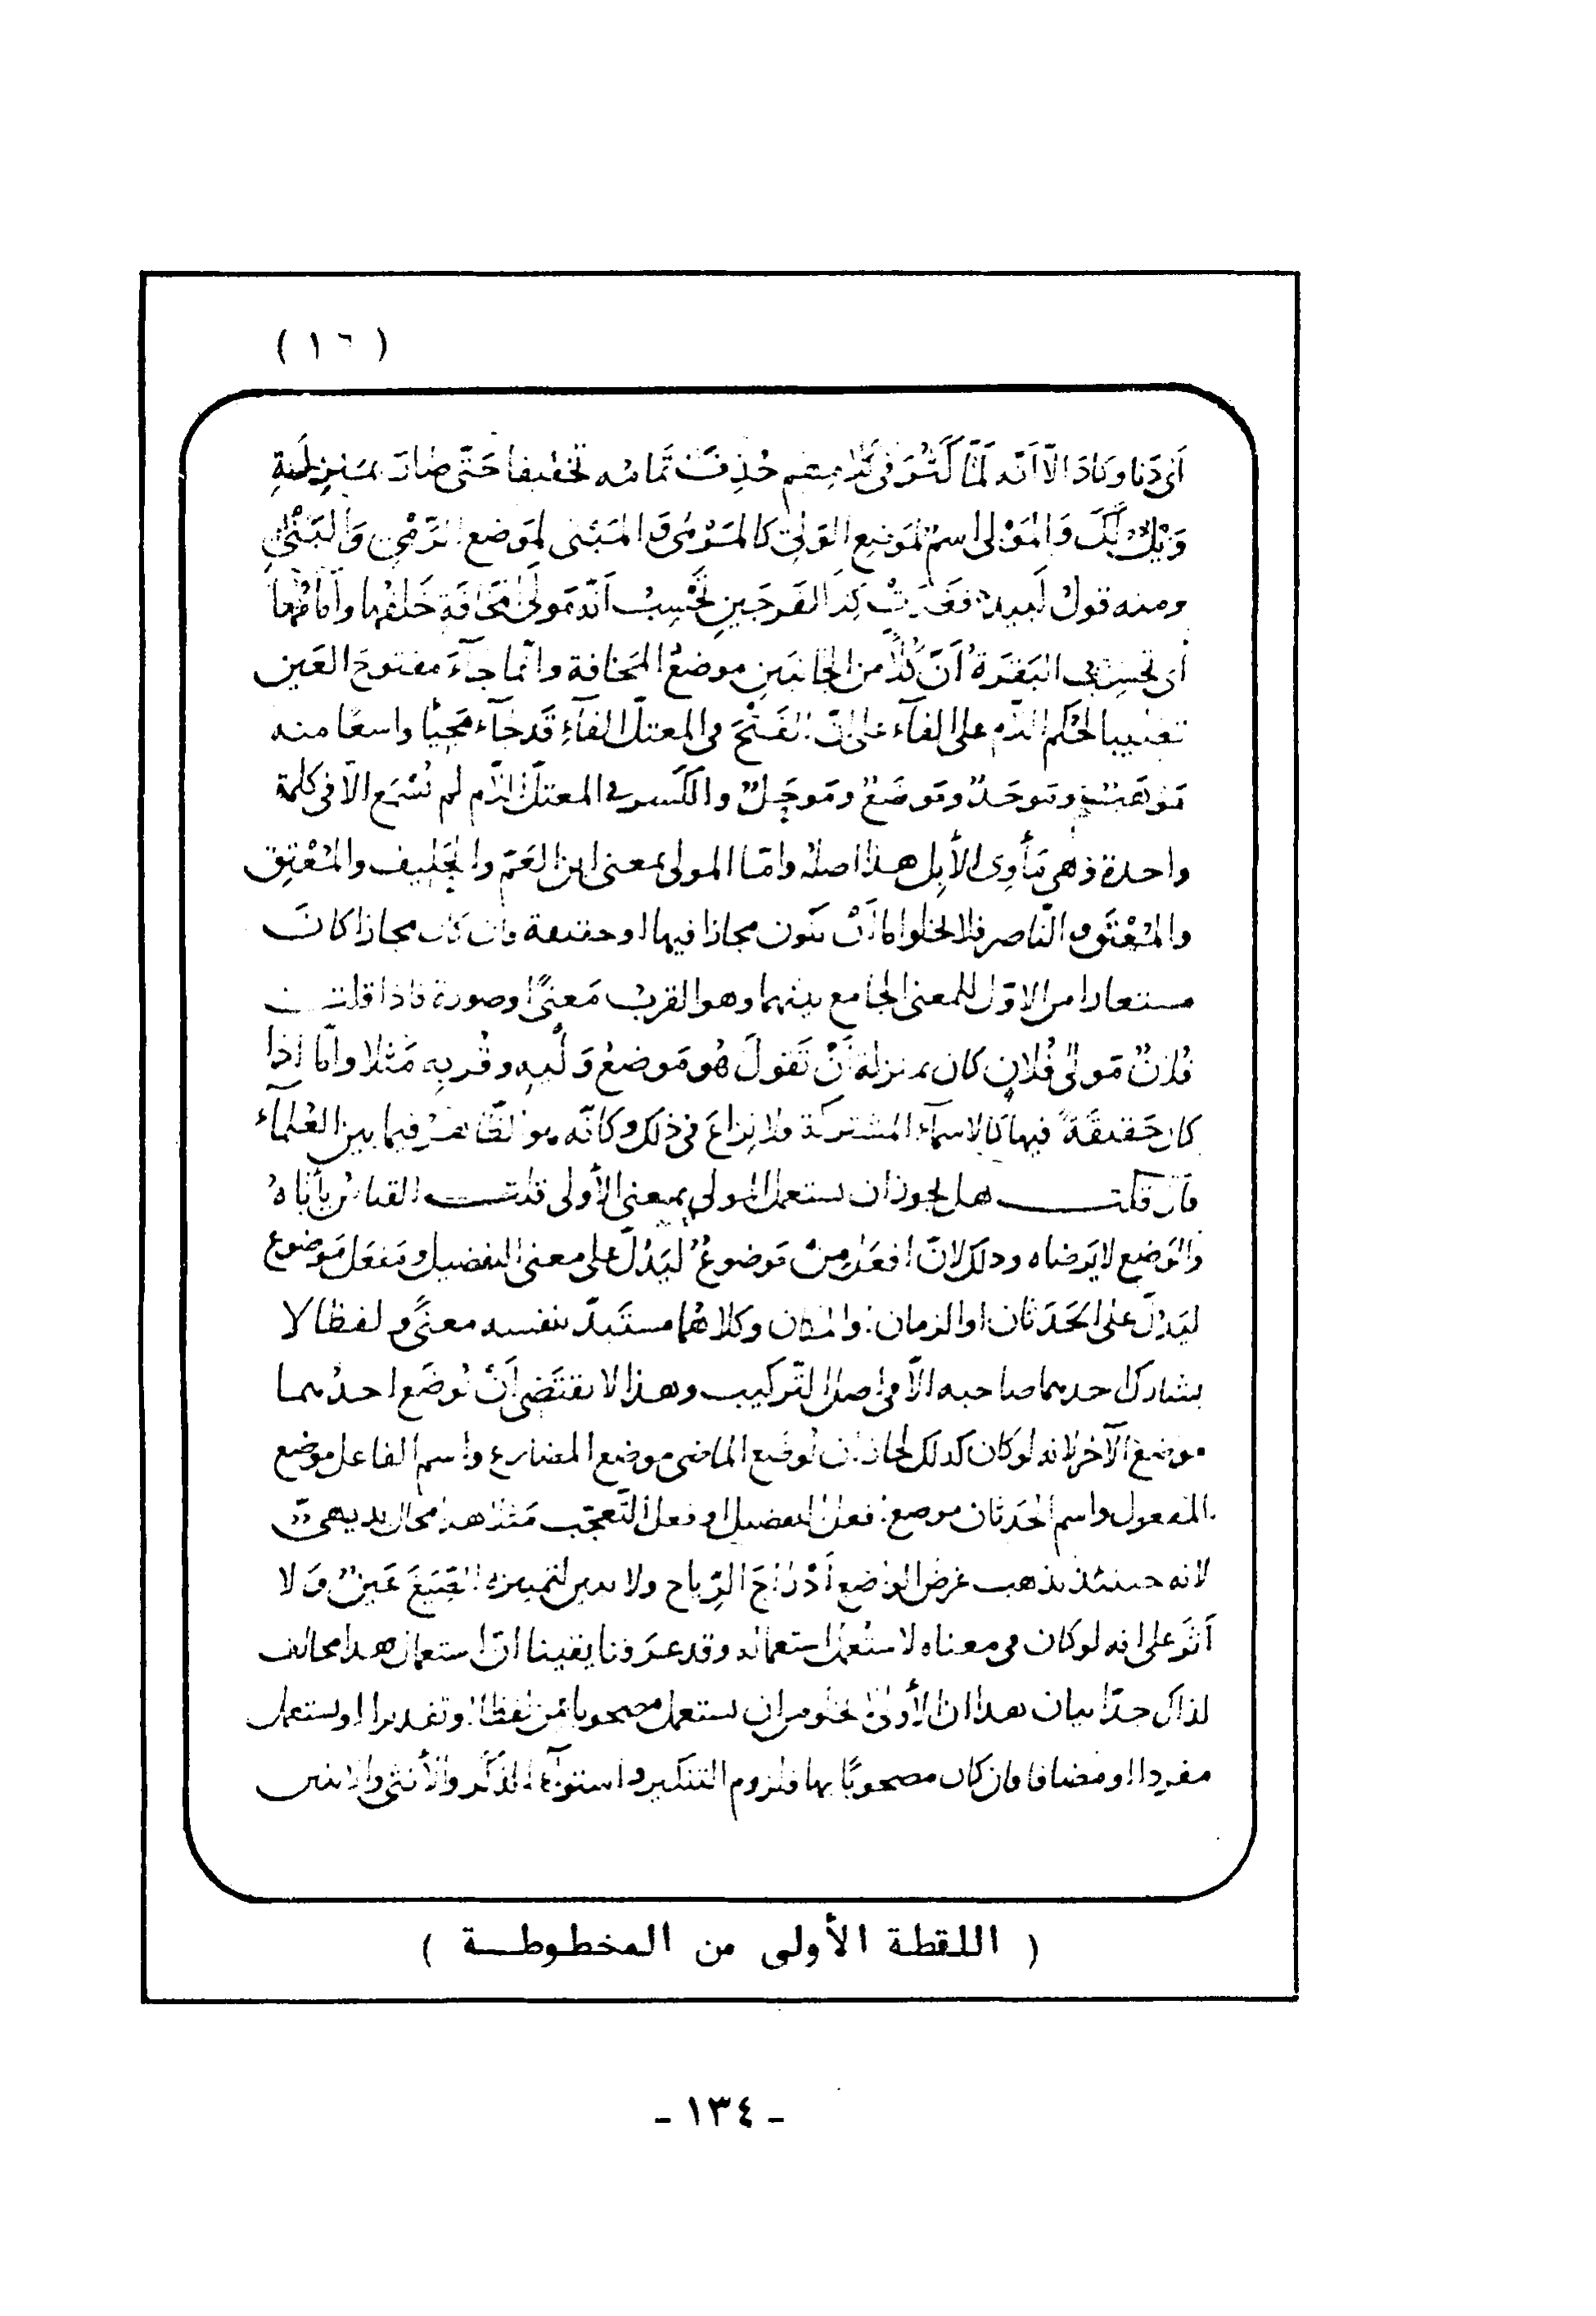 ( ١٦ )
أى دنا وكاد الّا انّه لمّا كثر فى كلامهم حُذِفَت تخفيفا حتّى صار بمنزلة
ويلٌ لك والمَوْلى اسم لموضع الولى كالمَرْمَى والمَبْنى لموضع الرَّمْى والبَنْى
ومنه قول لبيد فغدت كلا الفرجين تحسب أنّه مَولى المخافة خلفها وأمامها
اى تحسب البقرة أنّ كلًّا من الجانبين موضع المخافة وانّما جآء مفتوح العين
تغليبا لحكم اللّام على الفآء على انّ الفتح فى المعتلّ الفآء قد جآء مجيئًا واسعًا منه
مَوهَب ومَوحَدٌ ومَوضَعٌ ومَوجَلٌ والكسر فى المعتلّ اللّام لم يُسْمَع الّا فى كلمة
واحدة وهى مَأوِى الأبل هذا اصله وامّا المولى بمعنى ابن العمّ والحليف والمُعْتِق
والمُعْتَق والنّاصر فلا يخلوا امّا أنْ يكون مجازا فيها او حقيقة فان كان مجازا كانَ
مستعارا من الاوّل للمعنى الجامع بينهما وهو القرب معنًى وصورة فاذا قلت
فلانٌ مَولى فُلانٍ كان بمنزلة أنْ تَقولَ هُو مَوضعُ وَلْيِهِ وقُربِهِ مَثلا وامّا اذا
كان حَقيقَةً فيها فالاسمآء المشتركة ولا نزاعَ فى ذلك وكانّه هو الظّاهر فيما بين العلمآء
فان قلت هل يجوز ان يستعمل المولى بمعنى الأولى قلت القياس يأباهُ
والوَضع لا يَرضاه وذلك لانّ افعَل من مَوضوعٌ ليَدُلّ على معنى التفضيل ومَفعَل مَوضوع
ليدلّ على الحَدَثان او الزمان او المكان وكلاهُما مستَبدّ بنفسه معنًى ولفظا لا
يشارك احدهما صاحبه الّا فى اصل التّركيب وهذا لا يقتضى أنْ يُوضَع احدُهما
موضع الآخر لانه لو كان كذلك لجاز ان يُوضَع الماضى موضع المضارع واسم الفاعل موضع
المفعول واسم الحَدثان موضع افعل التفضيل او فعل التّعجّب مَثلا هذا محال بديهىّ
لانه حينئذ يذهب غرض الواضع أدْراجَ الرّياح ولا يبين لتمييزه الصِّيَغَ عَينٌ وَلا
أثَر على انه لو كان فى معناه لاستُعملَ استعماله وقد عرفنا يقينا انّ استعمال هذا مخالف
لذاك جدّا بيان هذا ان الأولى لا يخلو من ان يستعمل مصحوبا بمن لفظا او تقديرا او يستعمل
مفردا او مضافا فان كان مصحوبًا بها فلزوم التنكير واستوآء الذكر والأنثى والاثنين
( اللقطة الأولى من المخطوطة )
- ١٣٤ -